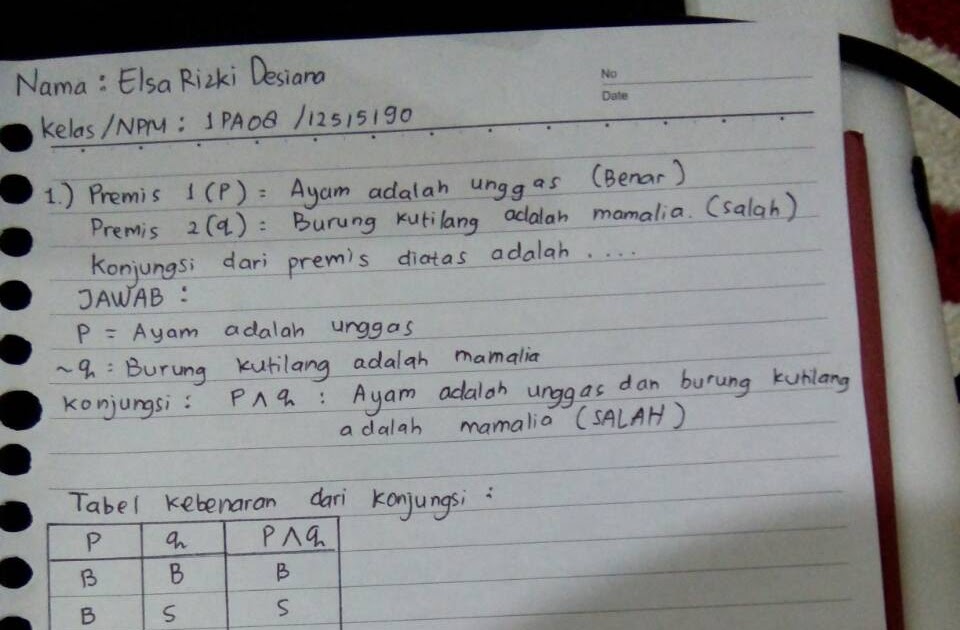 Nama : Elsa Rizki Desiana
No
Date
Kelas/NPM : 1PA08 /12515190
1.) Premis 1 (P) = Ayam adalah unggas (Benar)
Premis 2 (q) = Burung kutilang adalah mamalia. (salah)
Konjungsi dari premis diatas adalah ....
JAWAB :
P = Ayam adalah unggas
~q : Burung kutilang adalah mamalia
Konjungsi : P ∧ q : Ayam adalah unggas dan burung kutilang
adalah mamalia (SALAH)
Tabel kebenaran dari konjungsi :
P q P∧q
B B B
B S S